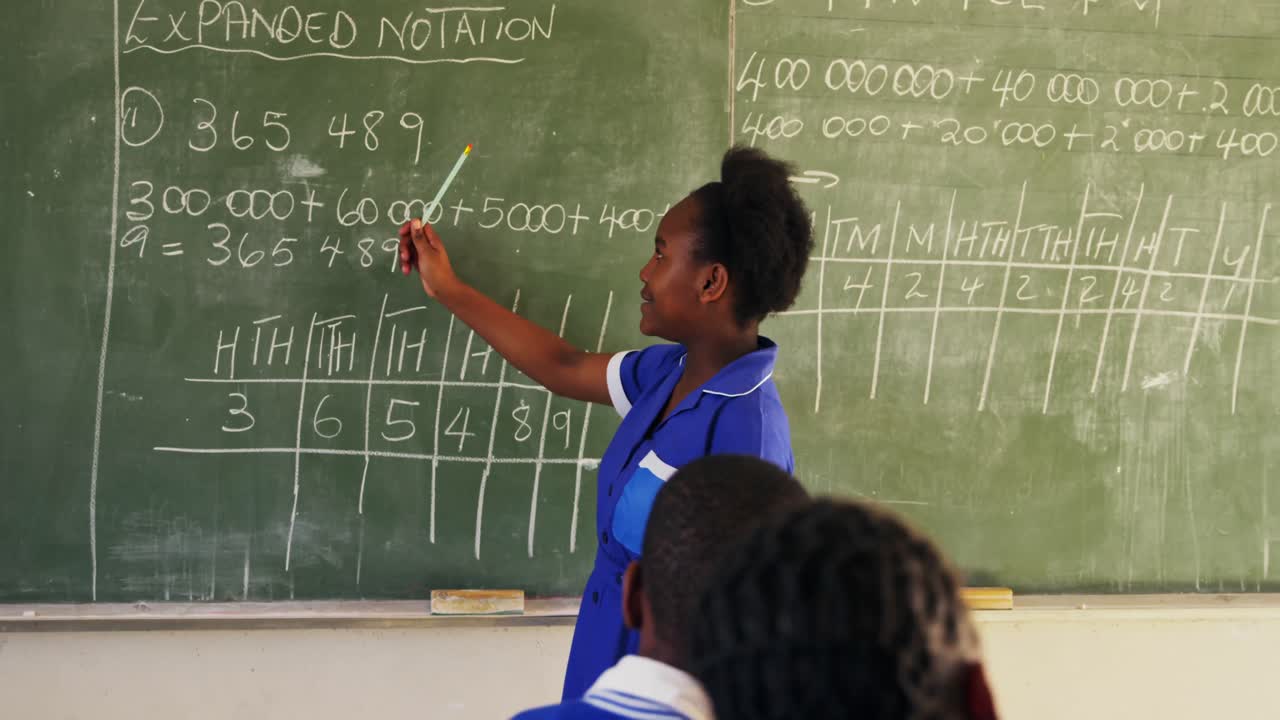 EXPANDED NOTATION
① 365 489
300 000 + 60 000 + 5000 + 400 +
9 = 365 489
HTH TTH TH H
3 6 5 4 8 9
400 000 000 + 40 000 000 + 2 000
400 000 + 20 000 + 2 000 + 400
TM M HTH TTH TH H T U
4 2 4 2 2 4 2 1